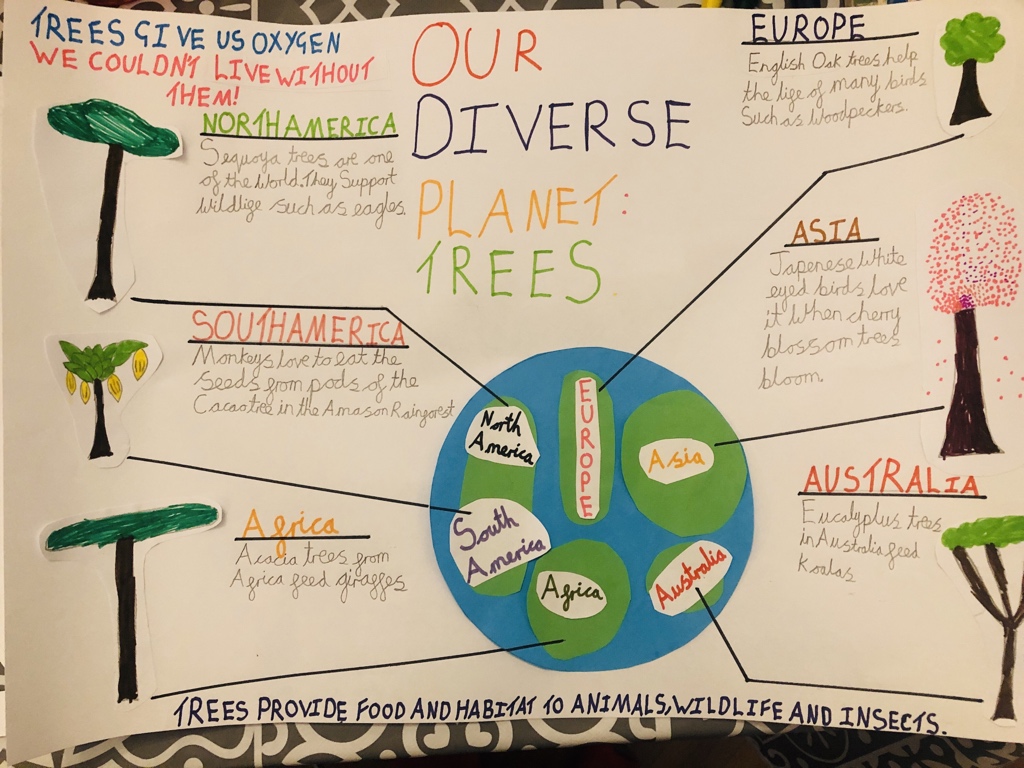 TREES GIVE US OXYGEN
WE COULDN'T LIVE WITHOUT
THEM!
OUR
DIVERSE
PLANET:
TREES
NORTH AMERICA
Sequoya trees are one
of the World. They Support
Wildlife such as eagles.
SOUTH AMERICA
Monkeys love to eat the
Seeds from pods of the
Cacao tree in the Amason Rainforest
Africa
Acacia trees from
Africa feed giraffes
EUROPE
English Oak trees help
the life of many birds
Such as Woodpeckers.
ASIA
Japenese White
eyed birds love
it When cherry
blossom trees
bloom.
AUSTRALIA
Eucalyplus trees
in Australia feed
Koalas
North
America
EUROPE
Asia
South
America
Africa
Australia
TREES PROVIDE FOOD AND HABITAT TO ANIMALS, WILDLIFE AND INSECTS.